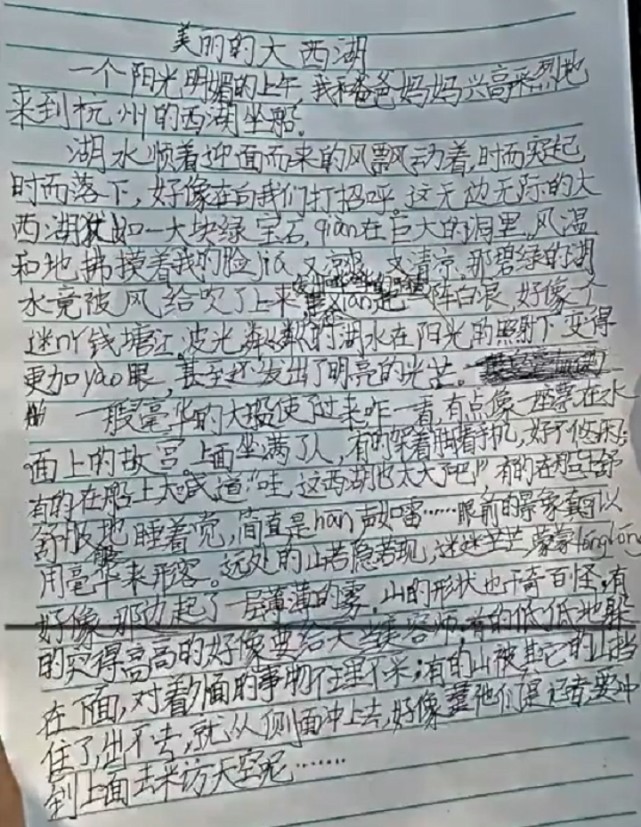 美丽的大西湖
一个阳光明媚的上午,我和爸爸妈妈兴高采烈地
来到杭州的西湖坐船。
湖水顺着迎面而来的风飘动着,时而突起
时而落下,好像在向我们打招呼。这无边无际的大
西湖犹如一大块绿宝石,qiàn在巨大的洞里。风温
和地拂摸着我的脸jiá,又 又清凉。那碧绿的湖
水竟被风给吹了上来 起一阵白浪,好像个
迷你钱塘江。波光粼粼的湖水在阳光的照射下变得
更加yào眼,甚至还发出了明亮的光芒。
一艘豪华的大船使了过来咋一看,有点像一座飘在水
面上的故宫。上面坐满了人,有的架着脚看手机,好不悠闲;
有的在船上大喊道“哇,这西湖也太大了吧!”有的在船上舒
舒服服地睡着觉,简直是hān声如雷……眼前的景象真可以
用豪华来形容。远处的山若隐若现,迷迷茫茫,蒙蒙lónglóng
好像那边起了一层薄薄的雾。山的形状也千奇百怪,有
的突得高高的好像要给天当美容师;有的低低地躲
在下面,对着 面的事物 ;有的山被其它的山挡
住了,出不去,就从侧面冲上去,好像 他们是记者,要冲
到上面去采访天空呢……